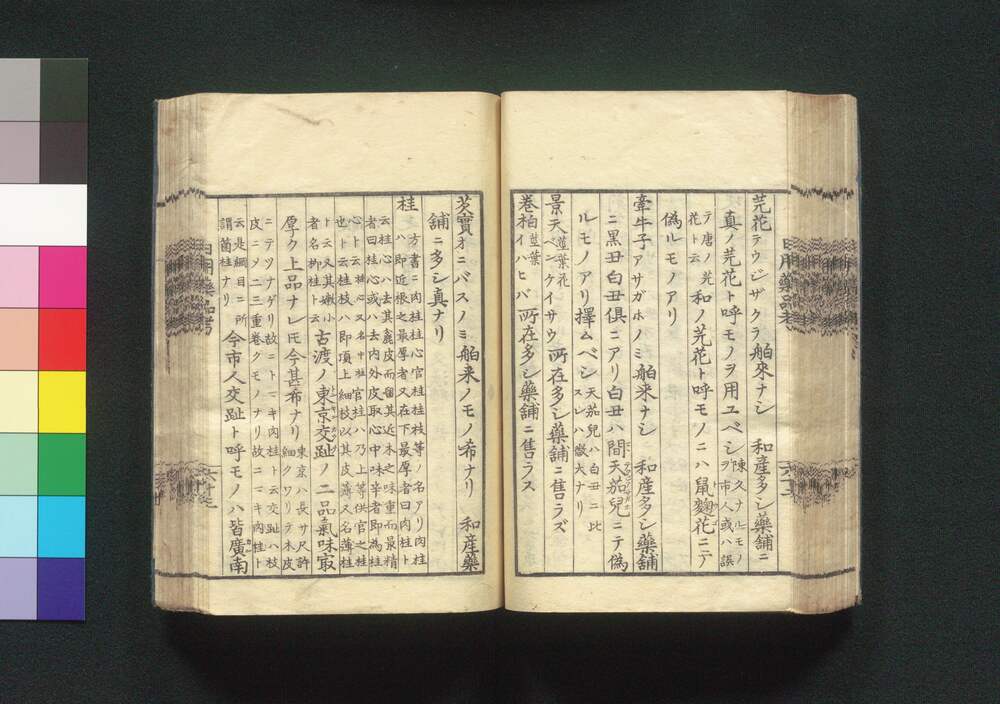 芫花テウジザクラ舶來ナシ 和産多シ藥舗ニ
真ノ芫花ト呼モノヲ用ユベシ陳久ナルモノ
ヲ市人或ハ誤
テ唐ノ芫
花ト云和ノ芫花ト呼モノニハ鼠麴花ニテ
偽ルモノアリ
牽牛子アサガホノミ舶來ナシ 和産多シ藥舗
ニ黒丑白丑倶ニアリ白丑ハ間天茄兒ニテ偽
ルモノアリ擇ムベシ天茄兒ハ白丑ニ比
スレハ微大ナリ
景天莖葉花
ベンケイサウ所在多シ藥舗ニ售ラズ
巻柏莖葉
イハヒバ所在多シ藥舗ニ售ラス
芡實オニバスノミ舶来ノモノ希ナリ 和産藥
舗ニ多シ真ナリ
桂一方書ニ肉桂桂心官桂桂枝等ノ名アリ肉桂
ハ即近根之最厚者又在下最厚者曰肉桂ト
云桂心ハ去其麁皮而留其近木之味重而最精
者曰桂心或ハ去内外皮取心中味辛者即為桂
心ト云桂心又名中桂官桂ハ乃上等供官之桂
也ト云桂枝ハ即頂上細枝以其皮薄又名薄桂
ト云又其嫩小
者名柳桂ト云古渡ノ東京交趾ノ二品氣味㝡
厚ク上品ナレ𪜈今甚希ナリ東京ハ長サ尺許
細クワリテ木皮
ニテツナゲリ故ニ
ニキ肉桂ト云交趾ハ枝
皮ニメ二三重巻クモノナリ故ニ
ニキ肉桂ト
云是綱目ニ所
謂菌桂ナリ今市人交趾ト呼モノハ皆廣南
日用藥品考